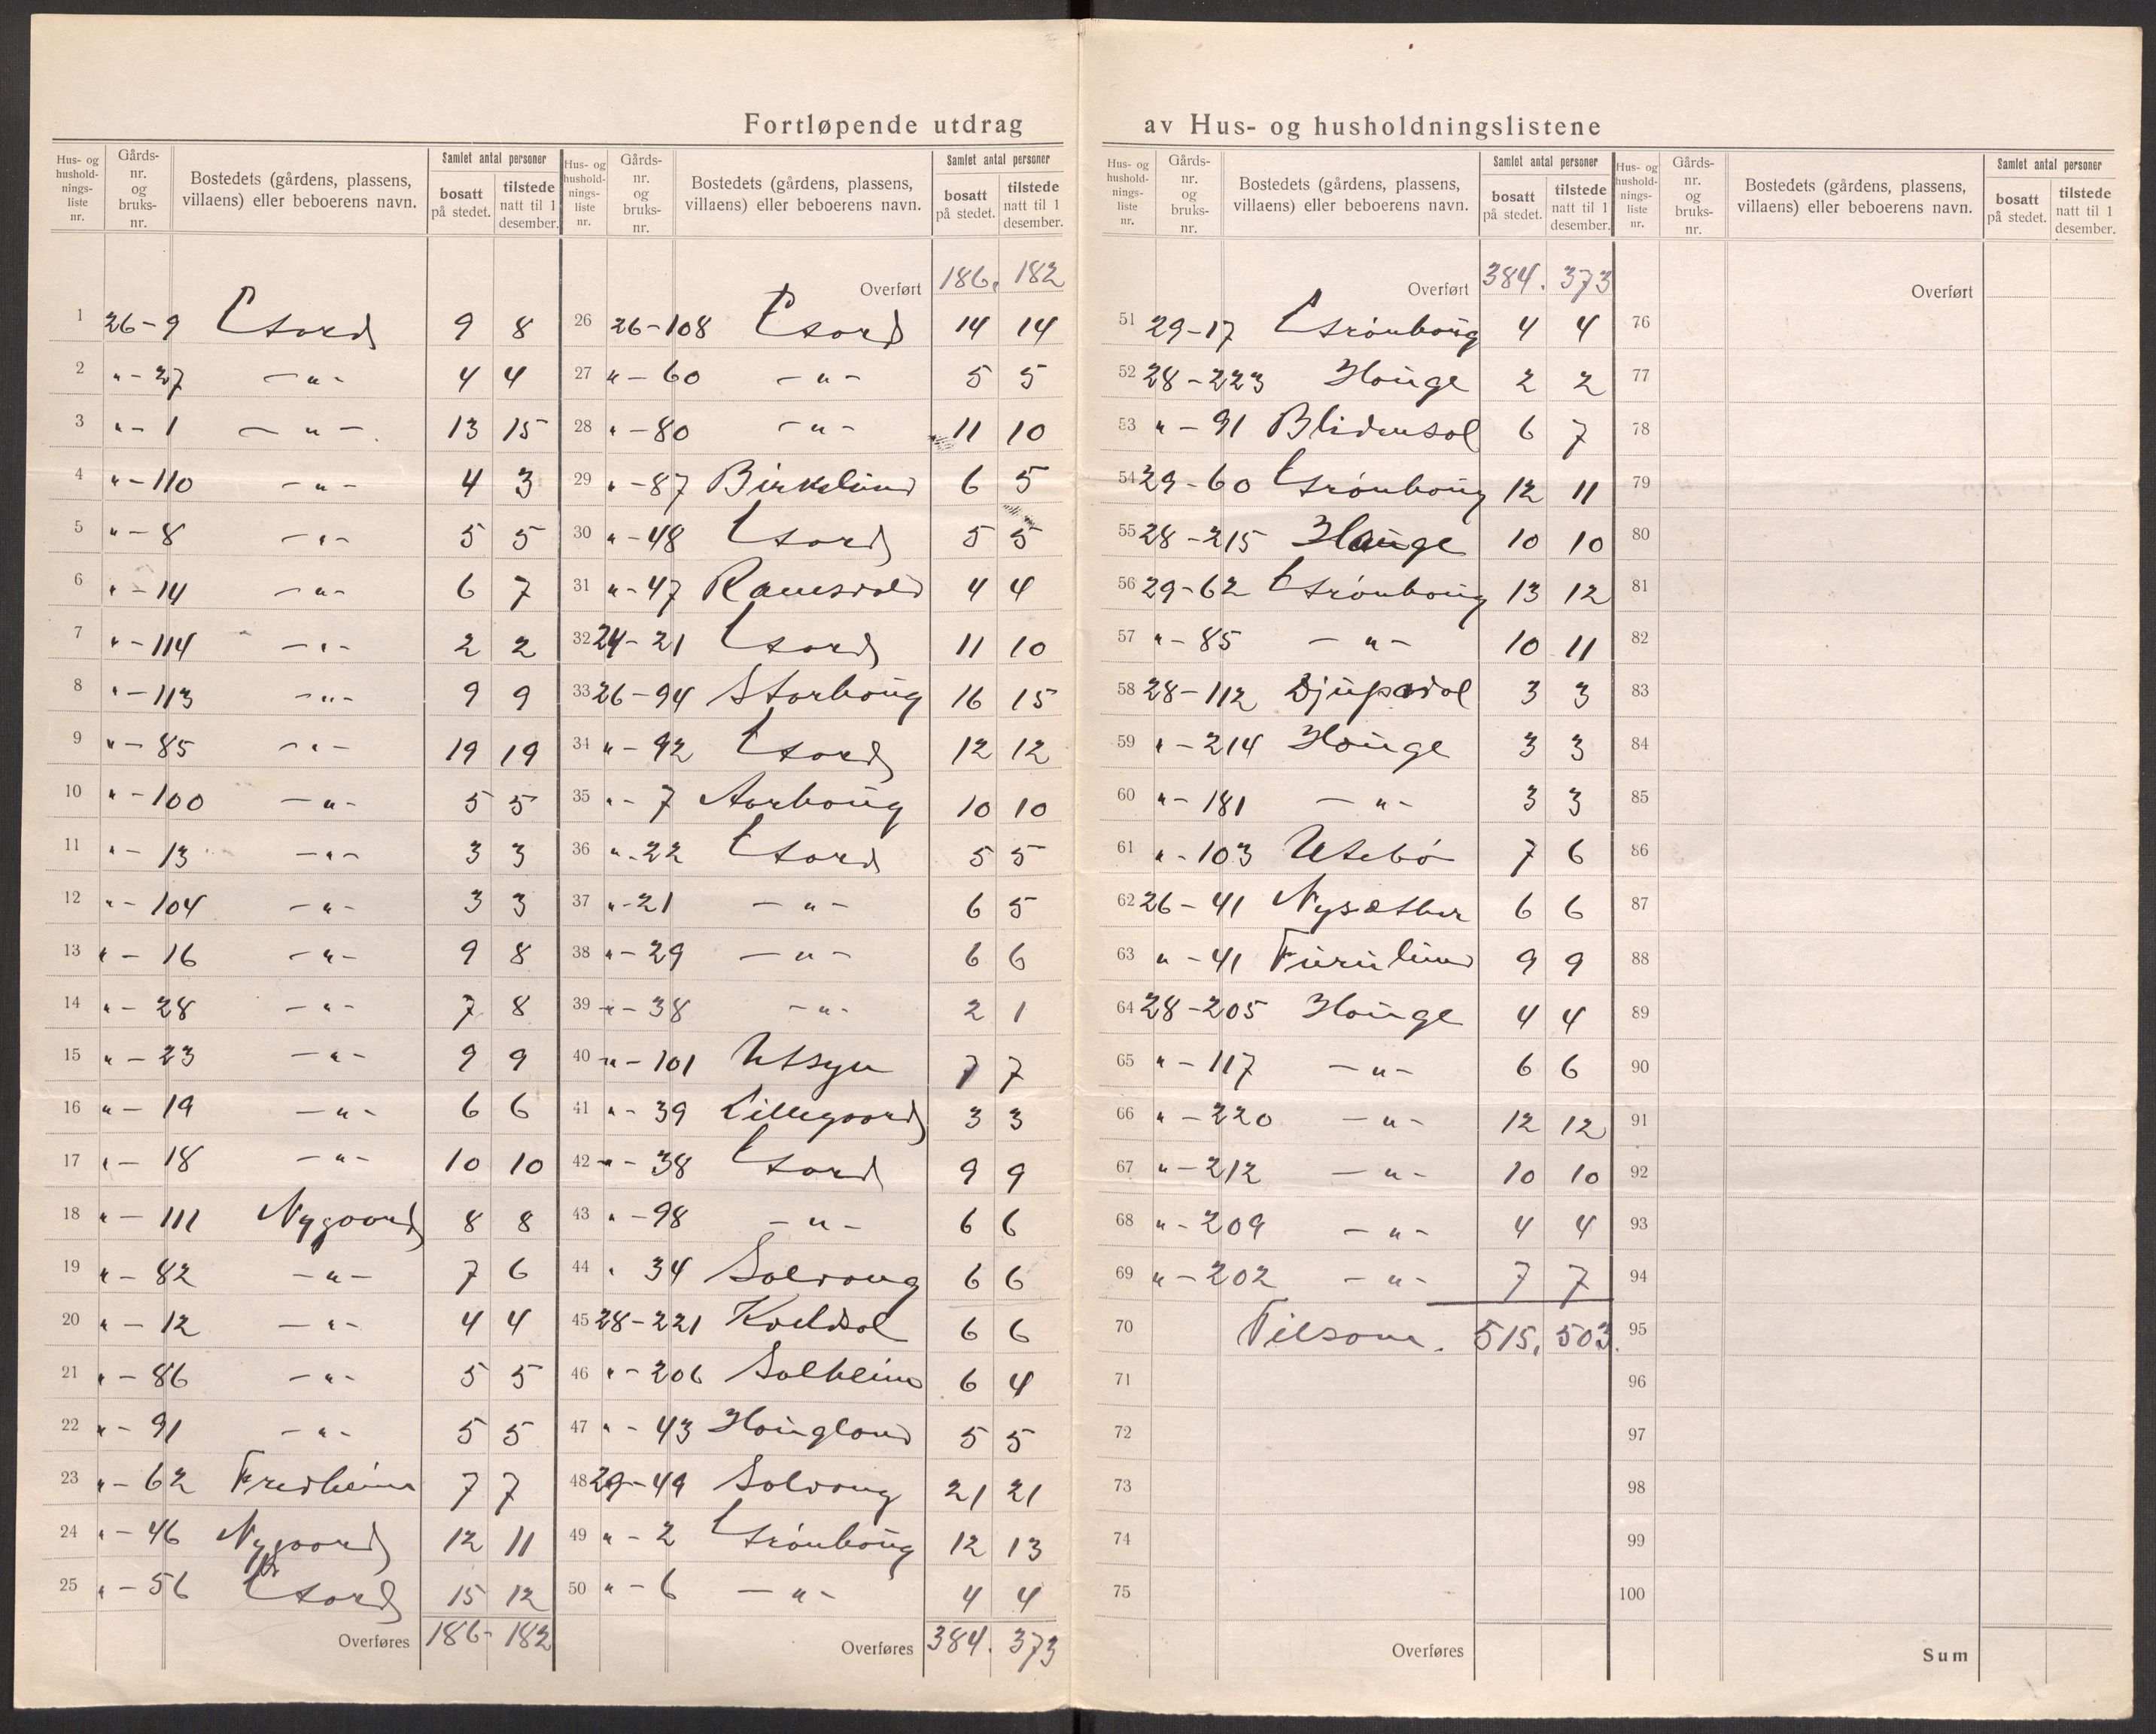 Fortløpende utdrag av Hus- og husholdningslistene
Hus- og hushold- nings- liste nr. | Gårds- nr. og bruks- nr. | Bostedets (gårdens, plassens, villaens) eller beboerens navn. | Samlet antal personer bosatt på stedet. | tilstede natt til 1 desember.
1 26-9 Leord 9 8
2 " - 27 - " - 4 4
3 " - 1 - " - 13 15
4 " - 110 - " - 4 3
5 " - 8 - " - 5 5
6 " - 14 - " - 6 7
7 " - 114 - " - 2 2
8 " - 113 - " - 9 9
9 " - 85 - " - 19 19
10 " - 100 - " - 5 5
11 " - 13 - " - 3 3
12 " - 104 - " - 3 3
13 " - 16 - " - 9 8
14 " - 28 - " - 7 8
15 " - 23 - " - 9 9
16 " - 19 - " - 6 6
17 " - 18 - " - 10 10
18 " - 111 Nygaard 8 8
19 " - 82 - " - 7 6
20 " - 12 - " - 4 4
21 " - 86 - " - 5 5
22 " - 91 - " - 5 5
23 " - 62 Fredheim 7 7
24 " - 46 Nygaard 12 11
25 " - 56 15 12
Overføres 186 - 182
Hus- og hushold- nings- liste nr. | Gårds- nr. og bruks- nr. | Bostedets (gårdens, plassens, villaens) eller beboerens navn. | Samlet antal personer bosatt på stedet. | tilstede natt til 1 desember.
Overført 186, 182
26 26-108 14 14
27 " - 60 - " - 5 5
28 " - 80 - " - 11 10
29 " - 87 Birkelund 6 5
30 " - 48 5 5
31 " - 47 Ramsdal 4 4
32 24-21 11 10
33 26-94 Storhaug 16 15
34 " - 92 12 12
35 " - 7 Aarhaug 10 10
36 " - 22 5 5
37 " - 21 - " - 6 5
38 " - 29 - " - 6 6
39 " - 38 - " - 2 1
40 " - 101 Utsyn 7 7
41 " - 39 Lillegaard 3 3
42 " - 38 9 9
43 " - 98 - " - 6 6
44 " 34 Solvang 6 6
45 28-221 Kveldsol 6 6
46 " - 206 Solheim 6 4
47 " - 43 Haugland 5 5
48 29-49 Solvang 21 21
49 " - 2 12 13
50 " - 6 - " - 4 4
Overføres 384. 373
Hus- og hushold- nings- liste nr. | Gårds- nr. og bruks- nr. | Bostedets (gårdens, plassens, villaens) eller beboerens navn. | Samlet antal personer bosatt på stedet. | tilstede natt til 1 desember.
Overført 384. 373
51 29-17 4 4
52 28-223 Hauge 2 2
53 " - 91 Blidensol 6 7
54 29-60 12 11
55 28-215 Hauge 10 10
56 29-62 13 12
57 " - 85 - " - 10 11
58 28-112 Djupadal 3 3
59 " - 214 Hauge 3 3
60 " - 181 - " - 3 3
61 " - 103 Utebø 7 6
62 26-41 Nysæther 6 6
63 " - 41 Furulund 9 9
64 28-205 Hauge 4 4
65 " - 117 - " - 6 6
66 " - 220 - " - 12 12
67 " - 212 - " - 10 10
68 " - 209 - " - 4 4
69 " - 202 - " - 7 7
70 Tilsam. 515, 503.
71
72
73
74
75
Overføres
Hus- og hushold- nings- liste nr. | Gårds- nr. og bruks- nr. | Bostedets (gårdens, plassens, villaens) eller beboerens navn. | Samlet antal personer bosatt på stedet. | tilstede natt til 1 desember.
Overført
76
77
78
79
80
81
82
83
84
85
86
87
88
89
90
91
92
93
94
95
96
97
98
99
100
Sum